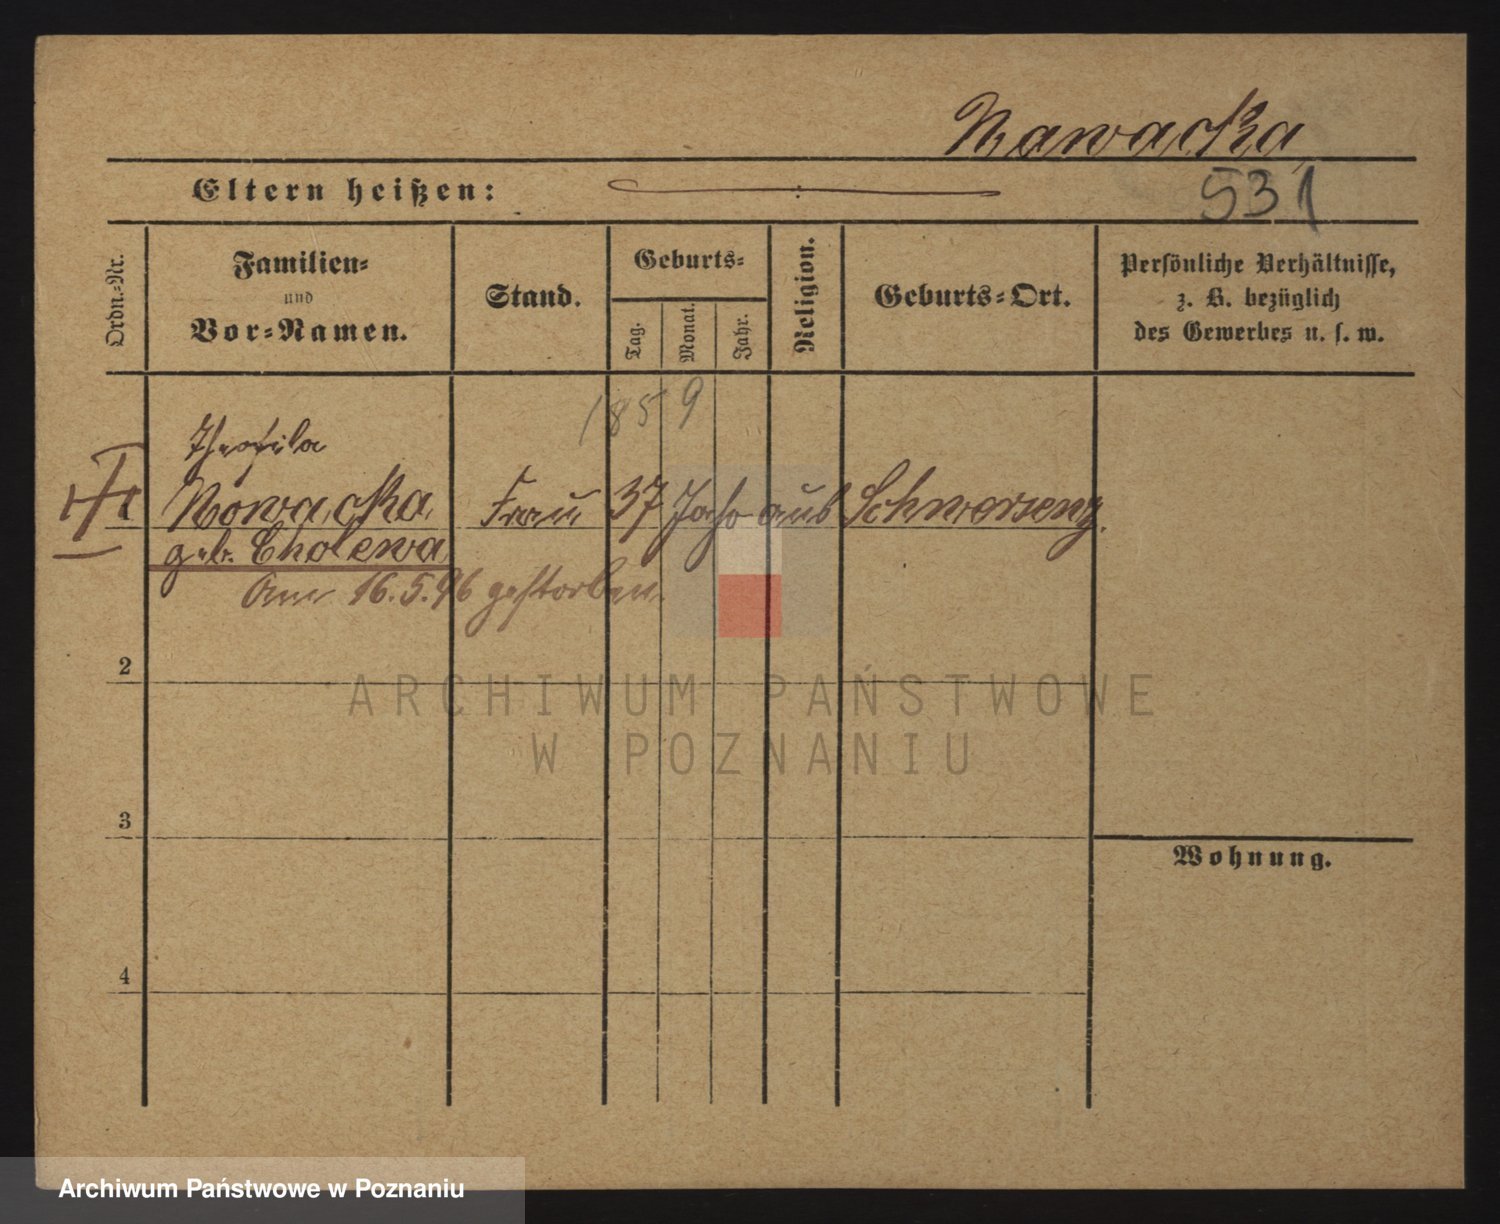 Nawacka
Eltern heißen:
531
Ordn.-Nr.
Familien-
und
Vor-Namen.
Stand.
Geburts-
Tag.
Monat.
Jahr.
Religion.
Geburts-Ort.
Persönliche Verhältnisse,
z. B. bezüglich
des Gewerbes u. s. w.
1859
Theofila
Nowacka Frau 37 Jahr aus Schwersenz.
geb. Cholewa
Am 16.5.96 gestorben.
2
ARCHIWUM PAŃSTWOWE
W POZNANIU
3
Wohnung.
4
Archiwum Państwowe w Poznaniu